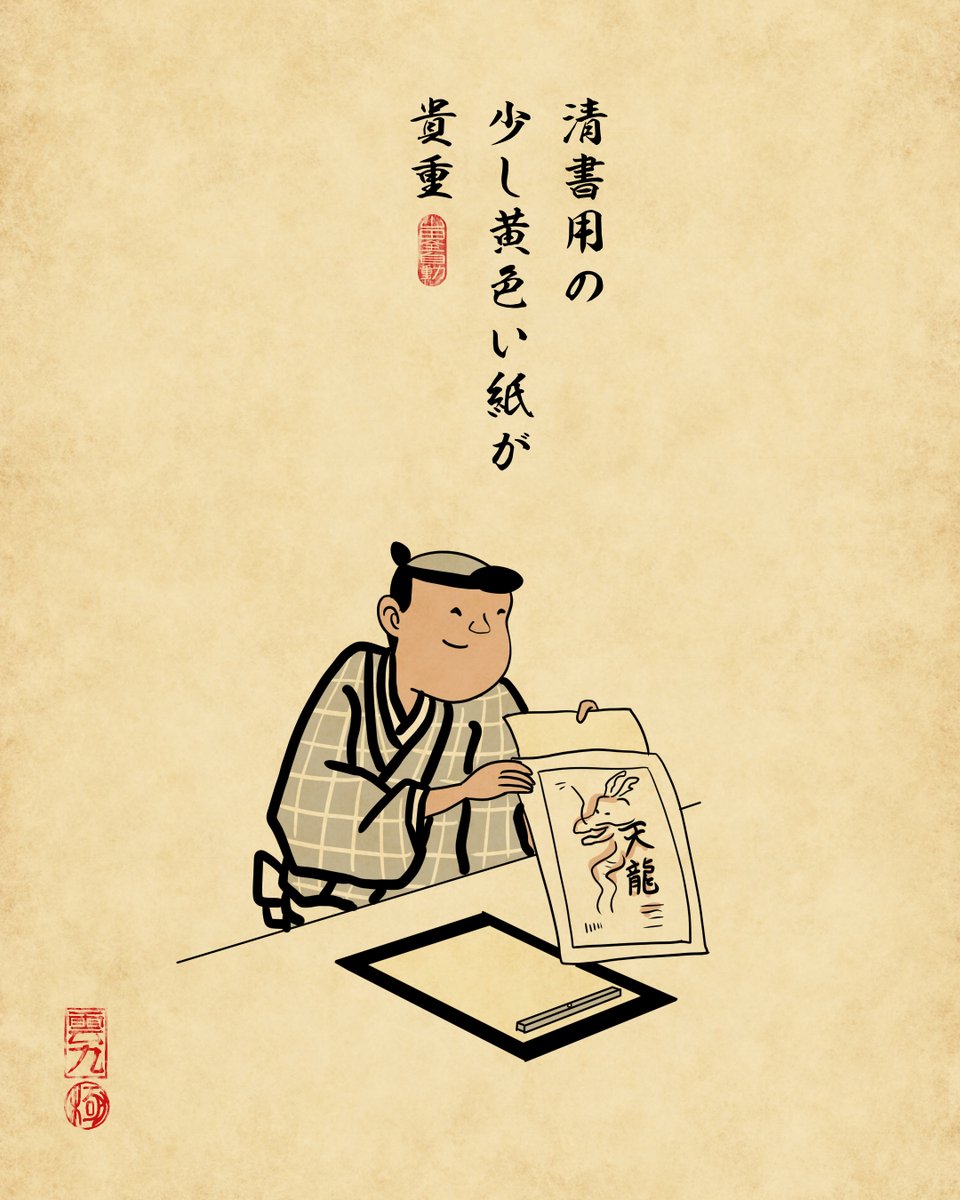 清書用の
少し黄色い紙が
貴重
天龍